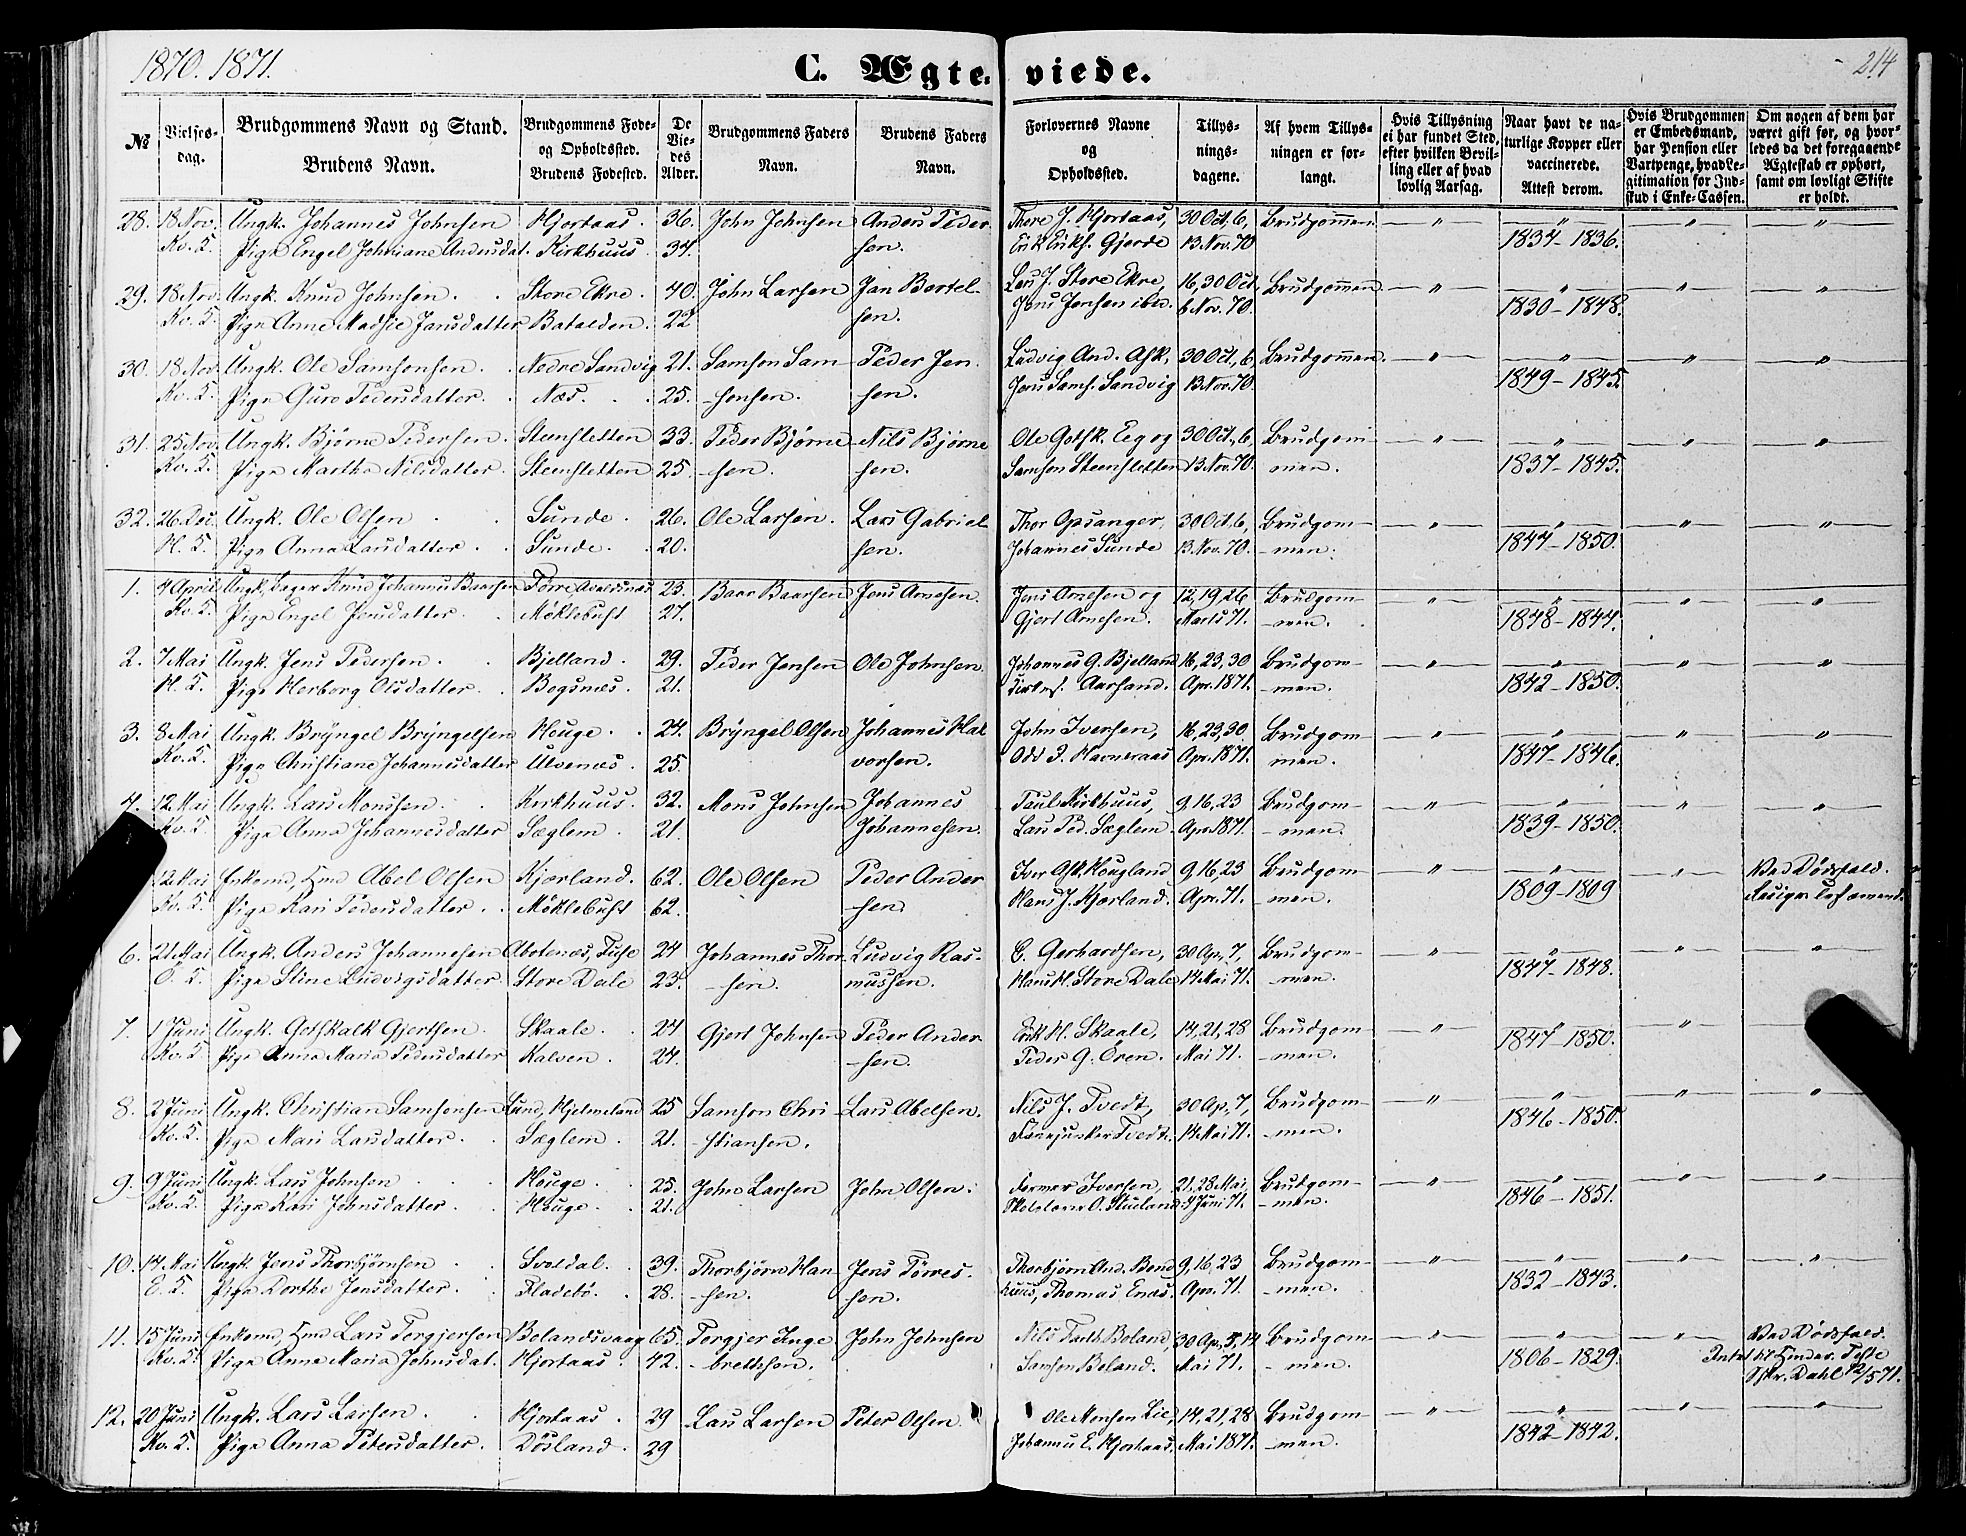 1870. 1871.
C. Ægteviede.
214
№
Vielsesdag.
Brudgommens Navn og Stand.
Brudens Navn.
Brudgommens Føde- og Opholdssted.
Brudens Fødested.
De Viedes Alder.
Brudgommens Faders Navn.
Brudens Faders Navn.
Forlovernes Navne og Opholdssted.
Tillysningsdagene.
Af hvem Tillysningen er forlangt.
Hvis Tillysning ei har fundet Sted, efter hvilken Bevilling eller af hvad lovlig Aarsag.
Naar havt de naturlige Kopper eller vaccinerede. Attest derom.
Hvis Brudgommen er Embedsmand, har Pension eller Vartpenge, hvad Legitimation for Indskud i Enke-Cassen.
Om nogen af dem har været gift før, og hvorledes da det foregaaende Ægteskab er ophørt, samt om lovligt Skifte er holdt.
28. 18 Nov. Ungk. Johannes Johnsen Hjortaas. 36. John Johnsen Anders Peder- Thore J. Hjortaas, 30 Oct, 6, Brudgommen. — " — — " — — " — — " —
Kv. K. Pige Engel Johniane Andersdat. Kirkhuus 34. sen. Erik Eriks. Gjerde 13. Nov. 70 1834 - 1836.
29. 18 Nov. Ungk. Knud Johnsen. Store Ekre. 40. John Larsen Jan Bertel- Lars J. Store Ekre, 16, 30 Oct, Brudgommen. — " — — " — — " — — " —
Kv. K. Pige Anne Madsie Jansdatter Batalden. 22 sen. Jens Jensen ibid. 6 Nov. 70. 1830 - 1848.
30. 18 Nov. Ungk. Ole Samsonsen. Nedre Sandvig 21. Samson Sam- Peder Jen- Ludvig And. Ask, 30 Oct., 6, Brudgommen. — " — — " — — " — — " —
Kv. K. Pige Guro Pedersdatter. Næs. 25. -sonsen. sen. Jens Sams. Sandvig 13. Nov. 70. 1849 - 1845.
31. 25 Nov. Ungk. Bjørne Pedersen. Steensletten 33. Peder Bjørne- Nils Bjørne- Ole Gotsk. Eeg og 30 Oct., 6, Brudgom- — " — — " — — " — — " —
Kv. K. Pige Martha Nilsdatter. Steensletten 25. -sen. sen. Samson Steensletten 13. Nov. 70. men. 1837 - 1845.
32. 26 Dec. Ungk. Ole Olsen Sunde. 26. Ole Larsen. Lars Gabriel- Thor Opsanger, 30 Oct, 6, Brudgom- — " — — " — — " — — " —
H. K. Pige Anna Larsdatter. Sunde. 20. sen. Johannes Sunde 13. Nov. 70. -men. 1847 - 1850.
1. 4 April Ungk, Knud Johannes Baarsen Førre, Avaldsnæs 23. Baar Baarsen Jens Arnesen. Jens Arnesen og 12, 19, 26 Brudgom- — " — — " — — " — — " —
Kv. K. Pige Engel Jensdatter. Møklebust 27. Gjert Arnesen. Marts 71. -men. 1848 - 1844.
2. 7 Mai Ungk. Jens Pedersen. Bjelland. 29. Peder Jensen Ole Johnsen. Johannes G. Bjelland 16, 23, 30 Brudgom- — " — — " — — " — — " —
H. K. Pige Herborg Olsdatter. Bogsnæs. 21. Aarsand. Apr. 1871. -men. 1842 - 1850.
3. 8 Mai Ungk. Bryngel Bryngelsen Houge. 24. Bryngel Olsen Johannes Hal- John Iversen, 16, 23, 30 Brudgom- — " — — " — — " — — " —
Kv. K. Pige Christiane Johannesdatter Ulvenæs. 25. vorsen. Odd I. Havneraas Apr. 1871. men. 1847 - 1846.
4. 12 Mai Ungk. Lars Monsen. Kirkhuus. 32. Mons Johnsen Johannes Paul Kirkhuus, 9, 16, 23 Brudgom- — " — — " — — " — — " —
Kv. K. Pige Anna Johannesdatter Sæglem. 21. Johannesen. Lars Ped. Sæglem. Apr. 1871. -men. 1839 - 1850.
12 Mai Enkemd, Abel Olsen Kjærland. 62. Ole Olsen Peder Ander- Iver Ask. Hougland 9, 16, 23 Brudgom- — " — — " — — " — Ved Dødsfald.
Kv. K. Pige Kari Pedersdatter. Møklebust 62. -sen. Hans J. Kjærland. Apr. 71. -men. 1809 - 1809
6. 21 Mai Ungk. Anders Johannesen Abotenæs, Fuse 24 Johannes Thor- Ludvig Ras- G. Gerhardsen, 30 Ap, 7, Brudgom- — " — — " — — " — — " —
E. K. Pige Stine Ludvigsdatter. Store Dale 23. -sen. mussen. Hans H. Store Dale 14 Mai 71. -men. 1847 - 1848.
7. 1 Juni Ungk. Gotskalk Gjertsen. Skaale. 24 Gjert Johnsen Peder Ander- Erik H. Skaale, 14, 21, 28 Brudgom- — " — — " —
Kv. K. Pige Anna Maria Pedersdatter Kalven. 24. -sen. Peder G. Øren. Mai 71. -men. 1847 - 1850.
8. 2 Juni Ungk. Christian Samsonsen Lund, Hjelmeland 25 Samson Chri- Lars Abelsen. Nils J. Tvedt, 30 Ap, 7, Brudgom- — " — — " — — " — — " —
Kv. K. Pige Mari Larsdatter. Sæglem. 21. -stiansen. Tvedt. 14 Mai 71. -men. 1846 - 1850.
9. 9 Juni Ungk. Lars Johnsen Houge. 25. John Larsen John Olsen. Iversen, 21, 28 Mai, Brudgom- — " — — " — — " — — " —
Kv. K. Pige Kari Johnsdatter. Houge. 21. Skolelærer O. Stueland 4 Juni 71. -men. 1846 - 1851.
10. 14 Mai Ungk. Jens Thorbjørnsen Svoldal. 39. Thorbjørn Han- Jens Tørres- Thorbjørn And. Bond- 9, 16, 23 Brudgom- — " — — " — — " — — " —
E. K. Pige Dorthe Jensdatter. Fladebø. 28. -sen. sen. huus, Thomas Enæs. Apr. 71. -men. 1832 - 1843.
11. 15 Juni Enkemd, Lars Torgjersen Belandsvaag 65. Torgjer Inge- John Johnsen Nils Beland, 30 Ap., 5, 14 Brudgom- — " — — " — — " — Ved Dødsfald.
Kv. K. Pige Anne Maria Johnsdat. Hjortaas. 42. -bretsen. Samson Beland. Mai 71. -men. 1806 - 1829. Dahl 12/5 71.
12. 20 Juni Ungk. Lars Larsen. Hjortaas. 29 Lars Larsen Peter Olsen Ole Monsen Lie, 14, 21, 28 Brudgom- — " — — " — — " — — " —
Kv. K. Pige Anna Petersdatter. Døsland. 29 Johannes E. Hjortaas. Mai 1871. -men. 1842 - 1842.